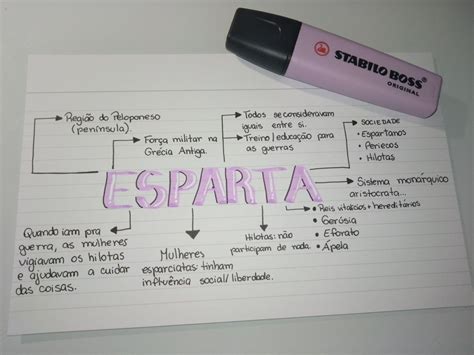 STABILO BOSS
ORIGINAL
Região do Peloponeso
(península).
Força militar na
Grécia Antiga.
Todos se consideravam
iguais entre si.
Treino/educação para
as guerras
SOCIEDADE
• Espartanos
• Periecos
• Hilotas
ESPARTA
Sistema monárquico
aristocrata...
• Reis vitalícios + hereditários
• Gerúsia
• Eforato
• Ápela
Quando iam pra
guerra, as mulheres
vigiavam os hilotas
e ajudavam a cuidar
das coisas.
Mulheres
esparciatas: tinham
influência social/liberdade.
Hilotas: não
participam de nada.